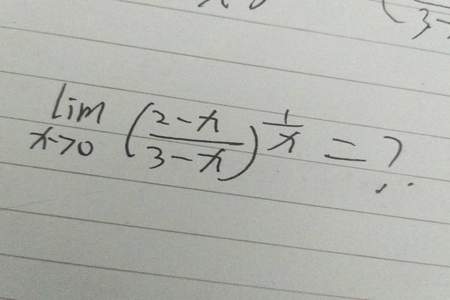 lim x→0 ((2-x)/(3-x))^(1/x) = ?